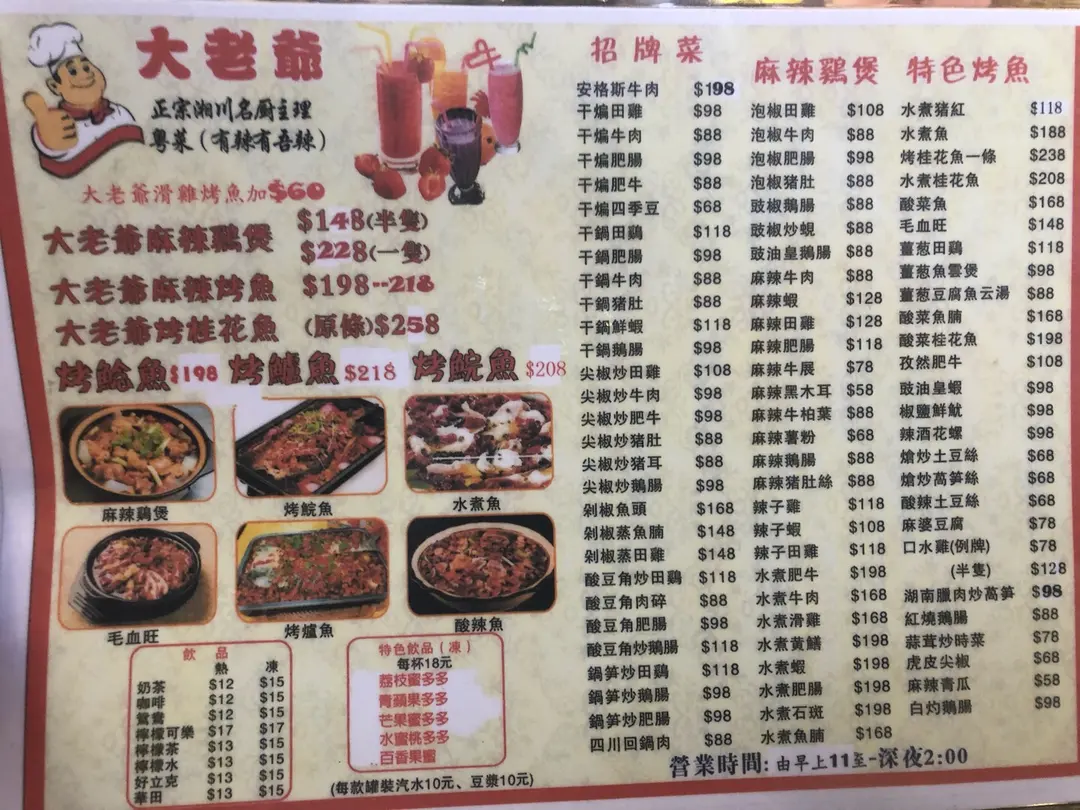 大老爺
正宗湘川名厨主理
粵菜（有辣有吾辣）
大老爺滑雞烤魚加$60
大老爺麻辣鷄煲 $148(半隻)
$228(一隻)
大老爺麻辣烤魚 $198--218
大老爺烤桂花魚 (原條)$258
烤鯰魚$198 烤鱸魚$218 烤鯇魚$208
麻辣鷄煲 烤鯇魚 水煮魚
毛血旺 烤爐魚 酸辣魚
飲品
熱 凍
奶茶 $12 $15
咖啡 $12 $15
鴛鴦 $12 $15
檸檬可樂 $17 $17
檸檬茶 $13 $15
檸檬水 $13 $15
好立克 $13 $15
華田 $13 $15
特色飲品（凍）
每杯18元
荔枝蜜多多
青蘋果多多
芒果蜜多多
水蜜桃多多
百香果蜜
(每款罐裝汽水10元、豆漿10元)
招牌菜
安格斯牛肉 $198
干煸田雞 $98
干煸牛肉 $88
干煸肥腸 $98
干煸肥牛 $88
干煸四季豆 $68
干鍋田鷄 $118
干鍋肥腸 $98
干鍋牛肉 $88
干鍋猪肚 $88
干鍋鮮蝦 $118
干鍋鵝腸 $98
尖椒炒田雞 $108
尖椒炒牛肉 $98
尖椒炒肥牛 $98
尖椒炒猪肚 $88
尖椒炒猪耳 $88
尖椒炒鵝腸 $98
剁椒魚頭 $168
剁椒蒸魚腩 $148
剁椒蒸田雞 $148
酸豆角炒田鷄 $118
酸豆角肉碎 $88
酸豆角肥腸 $98
酸豆角炒鵝腸 $118
鍋笋炒田鷄 $118
鍋笋炒鵝腸 $98
鍋笋炒肥腸 $98
四川回鍋肉 $88
麻辣鷄煲
泡椒田雞 $108
泡椒牛肉 $88
泡椒肥腸 $98
泡椒猪肚 $88
豉椒鵝腸 $88
豉椒炒蜆 $88
豉油皇鵝腸 $88
麻辣牛肉 $88
麻辣蝦 $128
麻辣田雞 $128
麻辣肥腸 $118
麻辣牛展 $78
麻辣黑木耳 $58
麻辣牛柏葉 $88
麻辣薯粉 $68
麻辣鵝腸 $88
麻辣猪肚絲 $88
辣子雞 $118
辣子蝦 $108
辣子田雞 $118
水煮肥牛 $198
水煮牛肉 $168
水煮滑雞 $168
水煮黄鱔 $198
水煮蝦 $198
水煮肥腸 $198
水煮石斑 $198
水煮魚腩 $168
特色烤魚
水煮猪紅 $118
水煮魚 $188
烤桂花魚一條 $238
水煮桂花魚 $208
酸菜魚 $168
毛血旺 $148
薑葱田鷄 $118
薑葱魚雲煲 $98
薑葱豆腐魚云湯 $88
酸菜魚腩 $168
酸菜桂花魚 $198
孜然肥牛 $108
豉油皇蝦 $98
椒鹽鮮魷 $98
辣酒花螺 $98
熗炒土豆絲 $68
熗炒萵笋絲 $68
酸辣土豆絲 $68
麻婆豆腐 $78
口水雞(例牌) $78
(半隻) $128
湖南臘肉炒萵笋 $98
紅燒鵝腸 $88
蒜茸炒時菜 $78
虎皮尖椒 $68
麻辣青瓜 $58
白灼鵝腸 $98
營業時間:由早上11至-深夜2:00